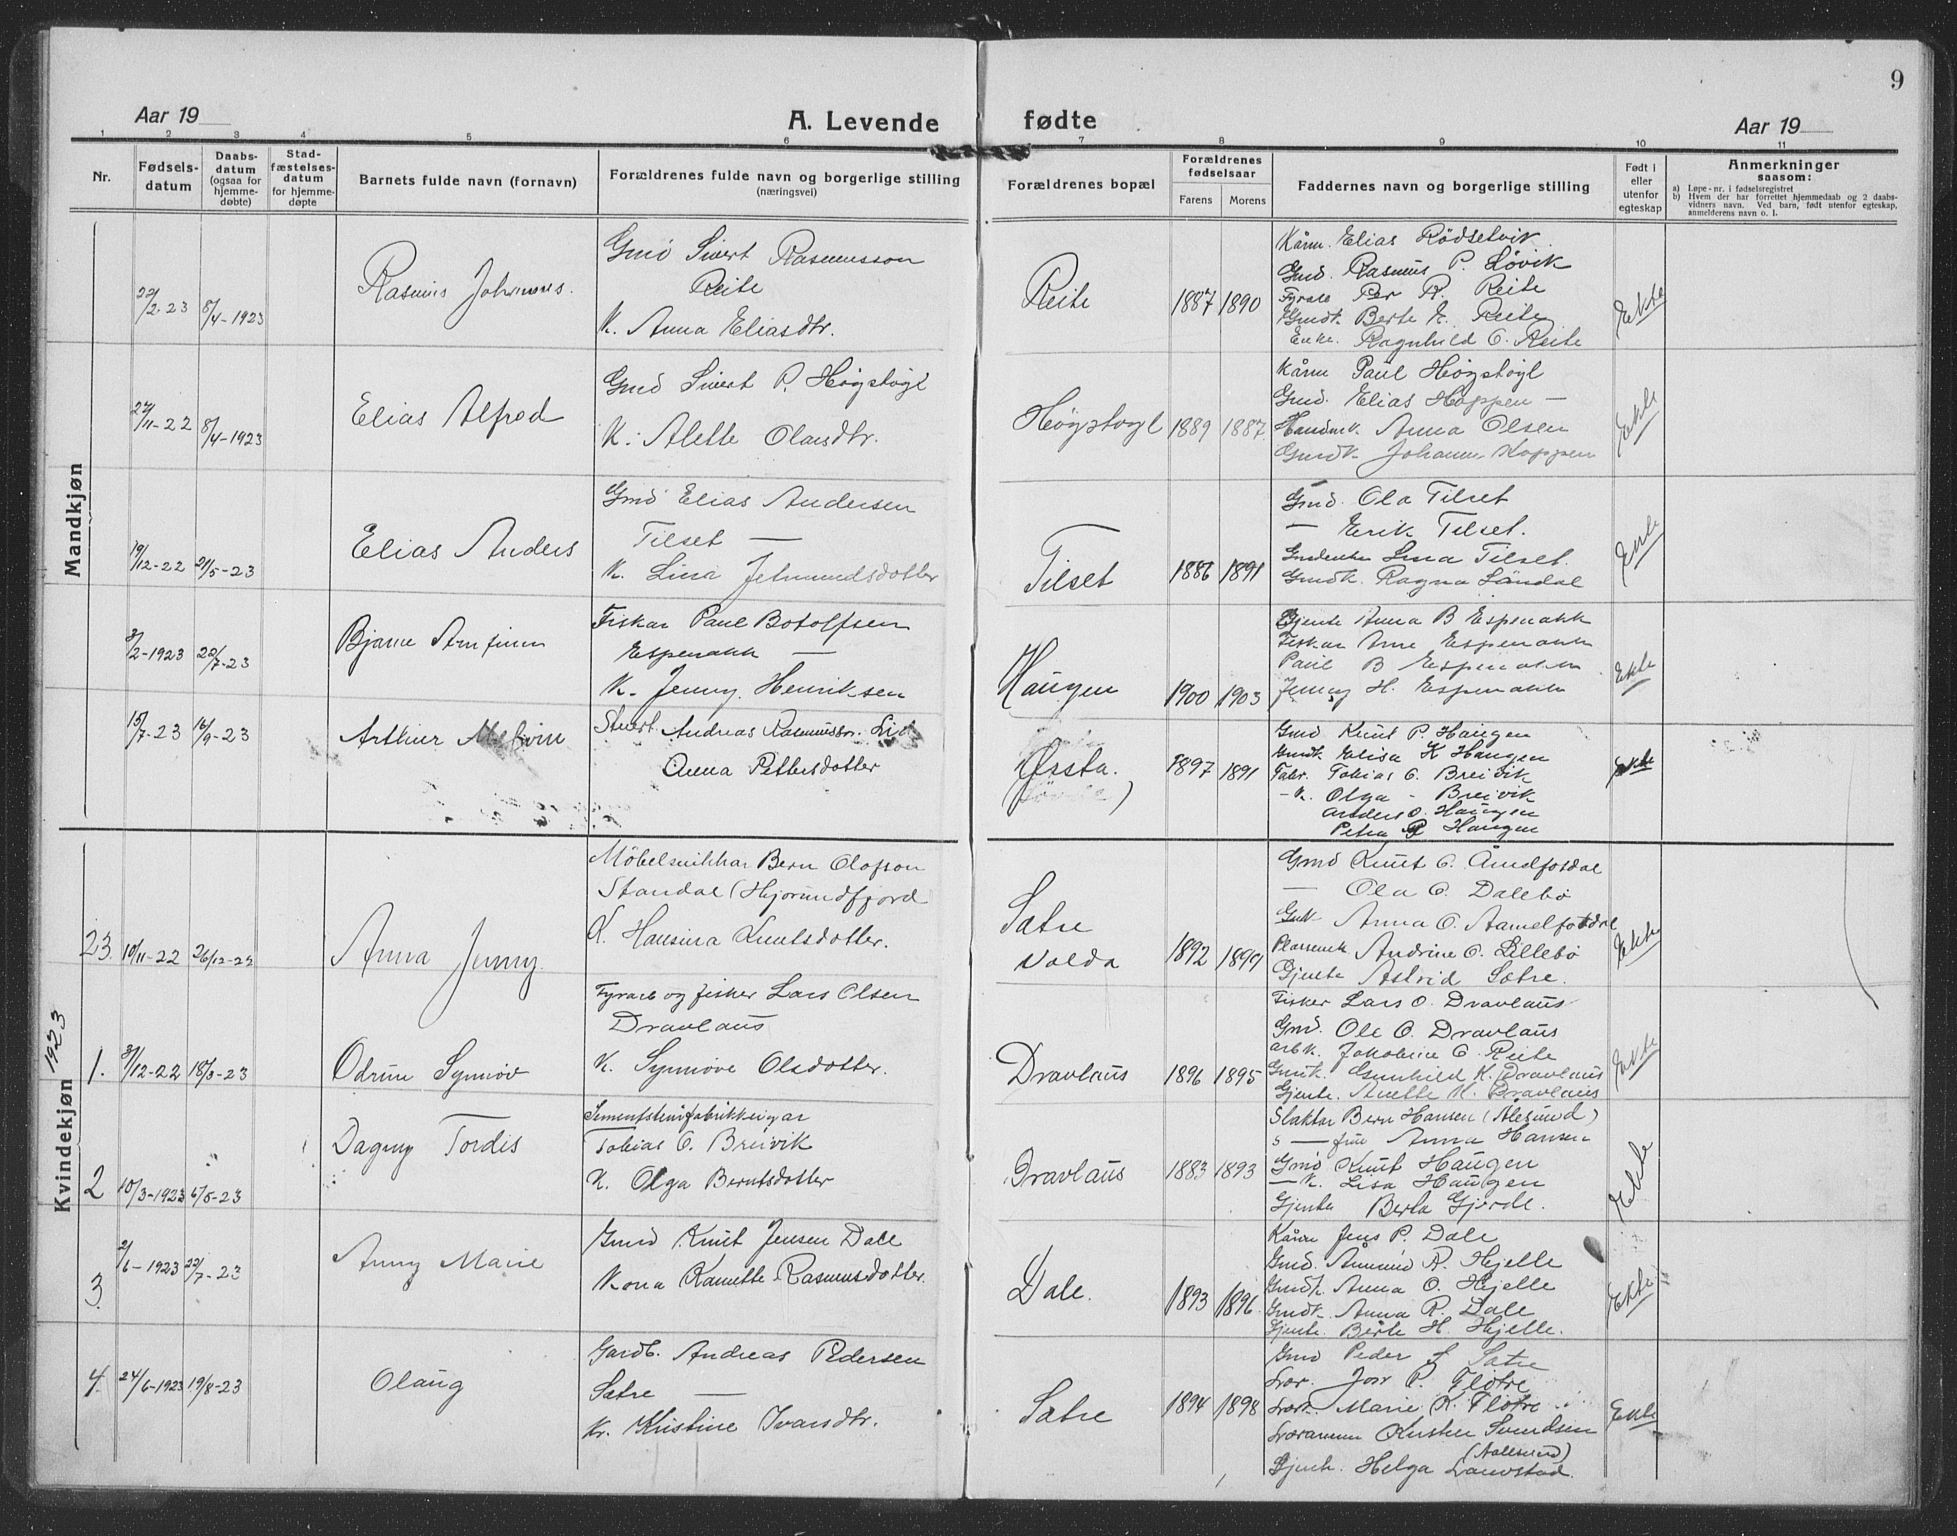 9
Aar 19
A. Levende fødte
Aar 19
1 2 3 4 5 6 7 8 9 10 11
Nr.
Fødsels-
datum
Daabs-
datum
(ogsaa for
hjemme-
døbte)
Stad-
fæstelses-
datum
for hjemme-
døpte
Barnets fulde navn (fornavn)
Forældrenes fulde navn og borgerlige stilling
(næringsvei)
Forældrenes bopæl
Forældrenes
fødselsaar
Farens
Morens
Faddernes navn og borgerlige stilling
Født i
eller
utenfor
egteskap
Anmerkninger
saasom:
a) Løpe-nr. i fødselsregistret
b) Hvem der har forrettet hjemmedaab og 2 daabs-
vidners navn. Ved barn, født utenfor egteskap,
anmelderens navn o. l.
Mandkjøn
22/2-23 8/4-1923
Rasmus Johannes.
Gmd Sivert Rasmusson
Reite
K. Anna Eliasdtr.
Reite
1887 1890
Kårm. Elias Rödsetvik
Gmd. Rasmus P. Løvik
Per R. Reite
Gmdk. Berte E. Reite
Enke. Ragnhild O. Reite
Ekte
27/11-22 8/4-1923
Elias Alfred
Gmd Sivert P. Høgstøgl
K. Alette Olausdtr.
Høgstøgl
1889 1887
Kårm Paul Høgstøgl
Gmd. Elias Hoppen —
Anna Olsen
Gmdk. Hoppen
Ekte
19/12-22 21/5-23
Elias Anders
Gmd Elias Andersen
Tilset —
K. Lina Jetmundsdotter
Tilset
1886 1891
Gmd. Ola Tilset
— Erik Tilset.
Lina Tilset.
Gmdk. Ragna Løndal
Ekte
3/2-1923 22/7-23
Bjarne Arnfinn
Fiskar Paul Botolfsen
Espenakk —
K. Jenny Henriksen
Haugen
1900 1903
Gjente Anna B Espenakk
Fiskar Arne Espenakk
Paul B Espenakk
Jenny H. Espenakk
Ekte
15/7-23 16/9-23
Arthur
Stuert. Andreas Rasmusson
Anna Pettersdotter
Ørsta.
1897 1891
Gmd Knut P. Haugen
Gmdk. Elisa K Haugen
Fabr. Tobias O. Breivik
- K. Olga - Breivik
Anders O. Haugen
Petra R Haugen
Ekte
Kvindekjøn 1923
23. 10/11-22 26/12-22
Anna Jenny.
Möbelsnikkar Bern Olofson
Standal (Hjørundfjord
K. Hansina Knutsdotter.
Satre
Volda
1892 1899
Gmd Knut O. Åmdfotdal
— Ola O. Dalebø
Anna O. Aamelfotdal
Andrine O. Lillebø
Gjente Astrid Satre.
Ekte
1. 3/12-22 18/3-23
Odrun Synnöv
Fyrarb og fisker Lars Olsen
Dravlaus
K. Synnöve Olsdotter.
Dravlaus
1896 1895
Fisker Lars O. Dravlaus
Gmd. Ole O. Dravlaus
arb k. Jakobine O. Reite
Gmdk. Gunhild K. Dravlaus
Gjente. Anette K. Dravlaus
Ekte
2 10/3-1923 6/5-23
Dagny Tordis
Sementsteinfabrikkeigar
Tobias O. Breivik
K. Olga Berntsdotter
Dravlaus
1883 1893
Slaktar Bern Hansen (Ålesund)
s — fru Anna Hansen
Gmd Knut Haugen
— K. Lisa Haugen
Gjente Berta Gjerde.
Ekte
3 2/6-1923 22/7-23
Anny Marie
Gmd Knut Jensen Dale
Kona Ramette Rasmusdotter.
Dale.
1893 1896
Kårm Jens P. Dale
Gmd. Åmund R. Hjelle
Gmdk. Anna O. Hjelle
Gmdk. Anna R. Dale
Gjente. Berte H. Hjelle.
Ekte
4. 24/6-1923 19/8-23
Olaug
Gardb. Andreas Pedersen
Satre —
K. Kristine Ivarsdtr.
Satre
1894 1898
Gmd Peder Satre
Lær. P. Fløtre
Marie K. Fløtre
Svendsen
(Aalesund)
Gjente. Helga
Ekte